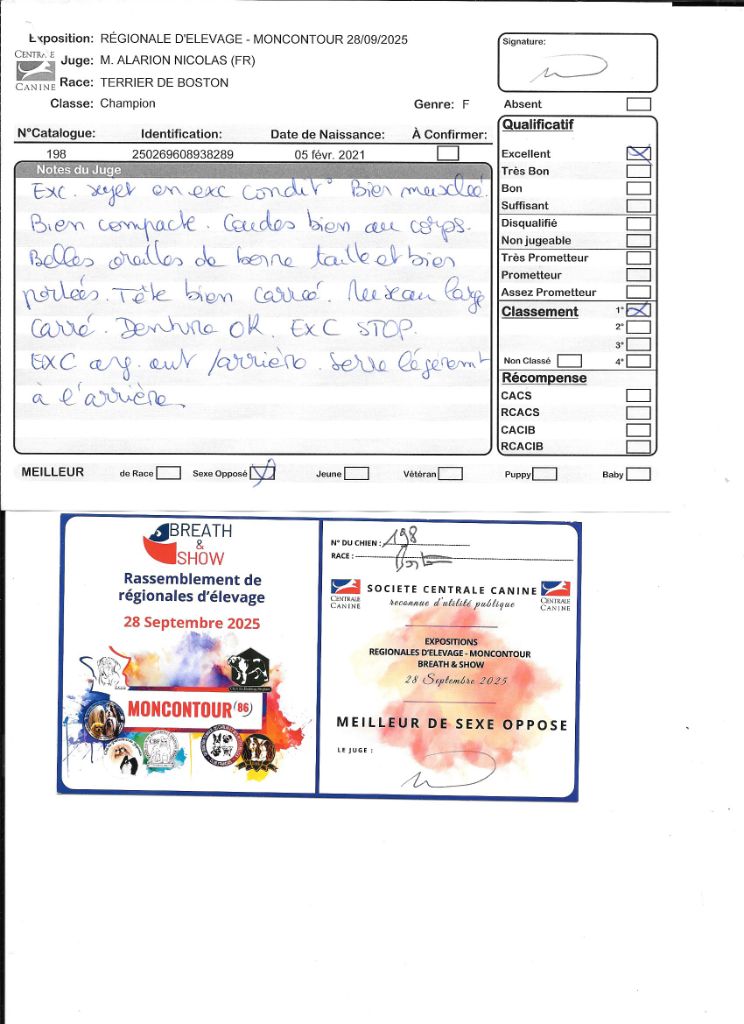 Exposition: RÉGIONALE D'ELEVAGE - MONCONTOUR 28/09/2025
CENTRALE
CANINE
Juge: M. ALARION NICOLAS (FR)
Race: TERRIER DE BOSTON
Classe: Champion
Genre: F
Signature:
N°Catalogue: Identification: Date de Naissance: À Confirmer:
198 250269608938289 05 févr. 2021
Notes du Juge
Exc. sujet en exc condit° Bien musclé.
Bien compacte. Coudes bien au corps.
Belles oreilles de bonne taille et bien
portées. Tête bien carrée. Museau large
carré. Denture OK. EXC STOP.
EXC ang. avt /arrière. Serre légèremt
à l'arrière.
Absent
Qualificatif
Excellent
Très Bon
Bon
Suffisant
Disqualifié
Non jugeable
Très Prometteur
Prometteur
Assez Prometteur
Classement 1°
2°
3°
Non Classé 4°
Récompense
CACS
RCACS
CACIB
RCACIB
MEILLEUR de Race Sexe Opposé Jeune Vétéran Puppy Baby
BREATH
&
SHOW
Rassemblement de
régionales d'élevage
28 Septembre 2025
MONCONTOUR (86)
N° DU CHIEN : 198
RACE : Boston
CENTRALE
CANINE
SOCIETE CENTRALE CANINE
reconnue d'utilité publique
CENTRALE
CANINE
EXPOSITIONS
REGIONALES D'ELEVAGE - MONCONTOUR
BREATH & SHOW
28 Septembre 2025
MEILLEUR DE SEXE OPPOSE
LE JUGE :